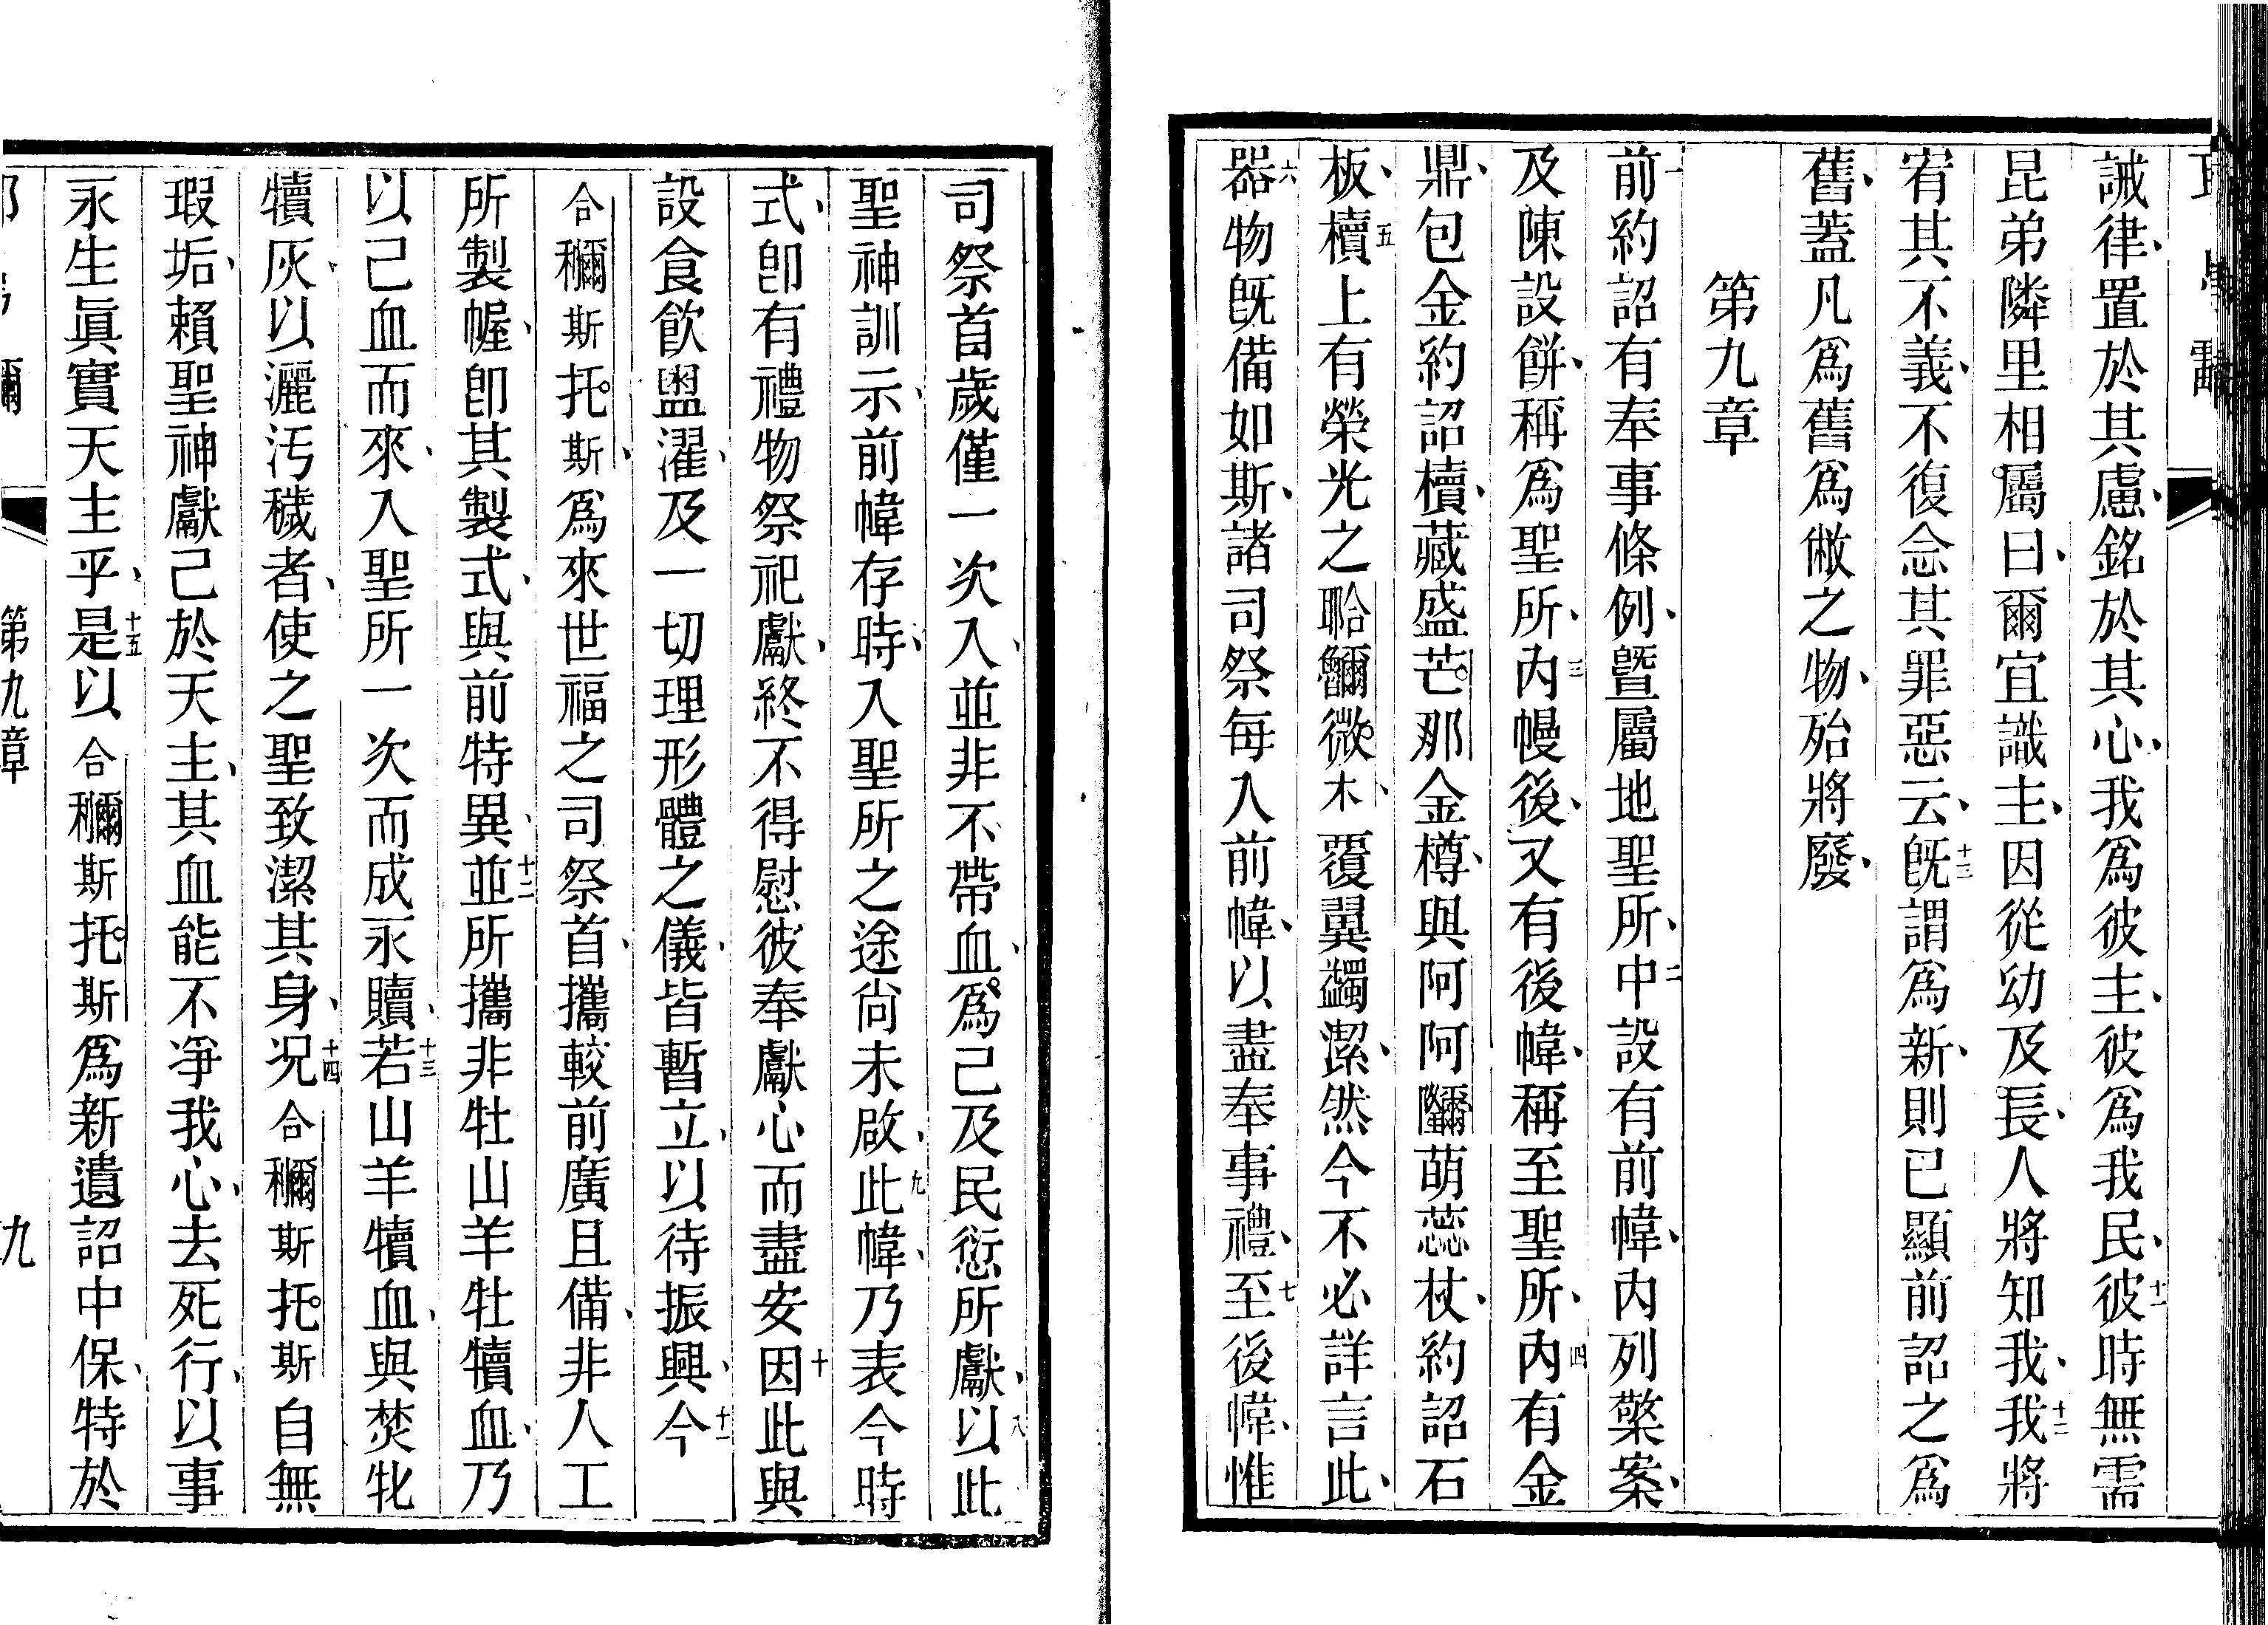 誡律、置於其慮、銘於其心、我爲彼主、彼爲我民、十一彼時無需
昆弟隣里相屬曰、爾宜識主、因從幼及長、人將知我、十二我將
宥其不義、不復念其罪惡云、十三既謂爲新、則已顯前詔之爲
舊、蓋凡爲舊爲敝之物、殆將廢、
第九章
一前約詔有奉事條例、曁屬地聖所、二中設有前幃、內列檠案、
及陳設餅、稱爲聖所、三內幔後、又有後幃、稱至聖所、四內有金
鼎、包金約詔櫝、藏盛芒那金樽、與阿阿萌蕊杖、約詔石
板、五櫝上有榮光之微木、覆翼蠲潔、然今不必詳言此、
六器物既備如斯、諸司祭每入前幃、以盡奉事禮、七至後幃、惟
司祭首歲僅一次入、並非不帶血、爲己及民愆所獻、八以此
聖神訓示、前幃存時、入聖所之途尙未啟、九此幃、乃表今時
式、卽有禮物祭祀獻、終不得慰彼奉獻心而盡安、十因此與
設食飲盥濯、及一切理形體之儀、皆暫立、以待振興、十一今
合穪斯托斯、爲來世福之司祭首、攜較前廣且備、非人工
所製幄、卽其製式、與前特異、十二並所攜非牡山羊牡犢血、乃
以己血而來、入聖所一次而成永贖、十三若山羊犢血、與焚牝
犢灰、以灑汚穢者、使之聖致潔其身、十四况合穪斯托斯自無
瑕垢、賴聖神獻己於天主、其血能不淨我心、去死行、以事
永生眞實天主乎、十五是以合穪斯托斯爲新遺詔中保、特於
第九章
九